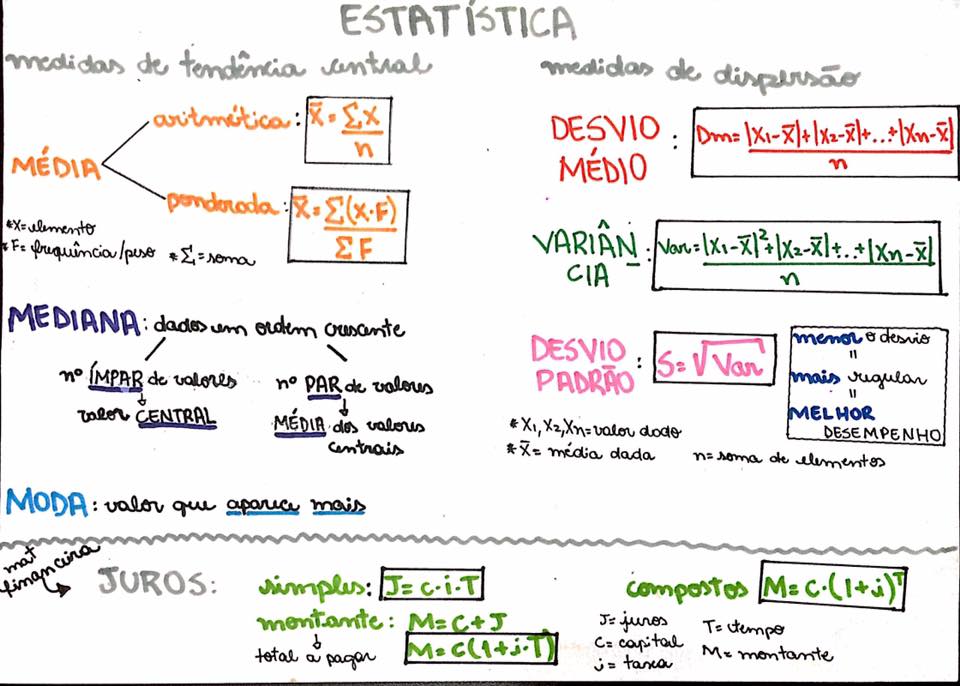 ESTATÍSTICA
medidas de tendência central
MÉDIA
aritmética: x̄ = Σx / n
ponderada: x̄ = Σ(x·F) / ΣF
*x = elemento
*F = frequência/peso *Σ = soma
MEDIANA: dados em ordem crescente
nº ÍMPAR de valores
↓
valor CENTRAL
nº PAR de valores
↓
MÉDIA dos valores
centrais
MODA: valor que aparece mais
medidas de dispersão
DESVIO
MÉDIO : Dm = |x₁-x̄|+|x₂-x̄|+...+|xn-x̄| / n
VARIÂN
CIA : Var = |x₁-x̄|²+|x₂-x̄|+...+|xn-x̄| / n
DESVIO
PADRÃO : S = √Var
menor o desvio
=
mais regular
=
MELHOR
DESEMPENHO
*x₁, x₂, xn = valor dado
*x̄ = média dada n = soma de elementos
mat
financeira
JUROS:
simples: J = c·i·T
montante: M = C + J
↓
total a pagar M = C(1+i·T)
compostos M = C·(1+i)ᵀ
J = juros T = tempo
C = capital M = montante
i = taxa